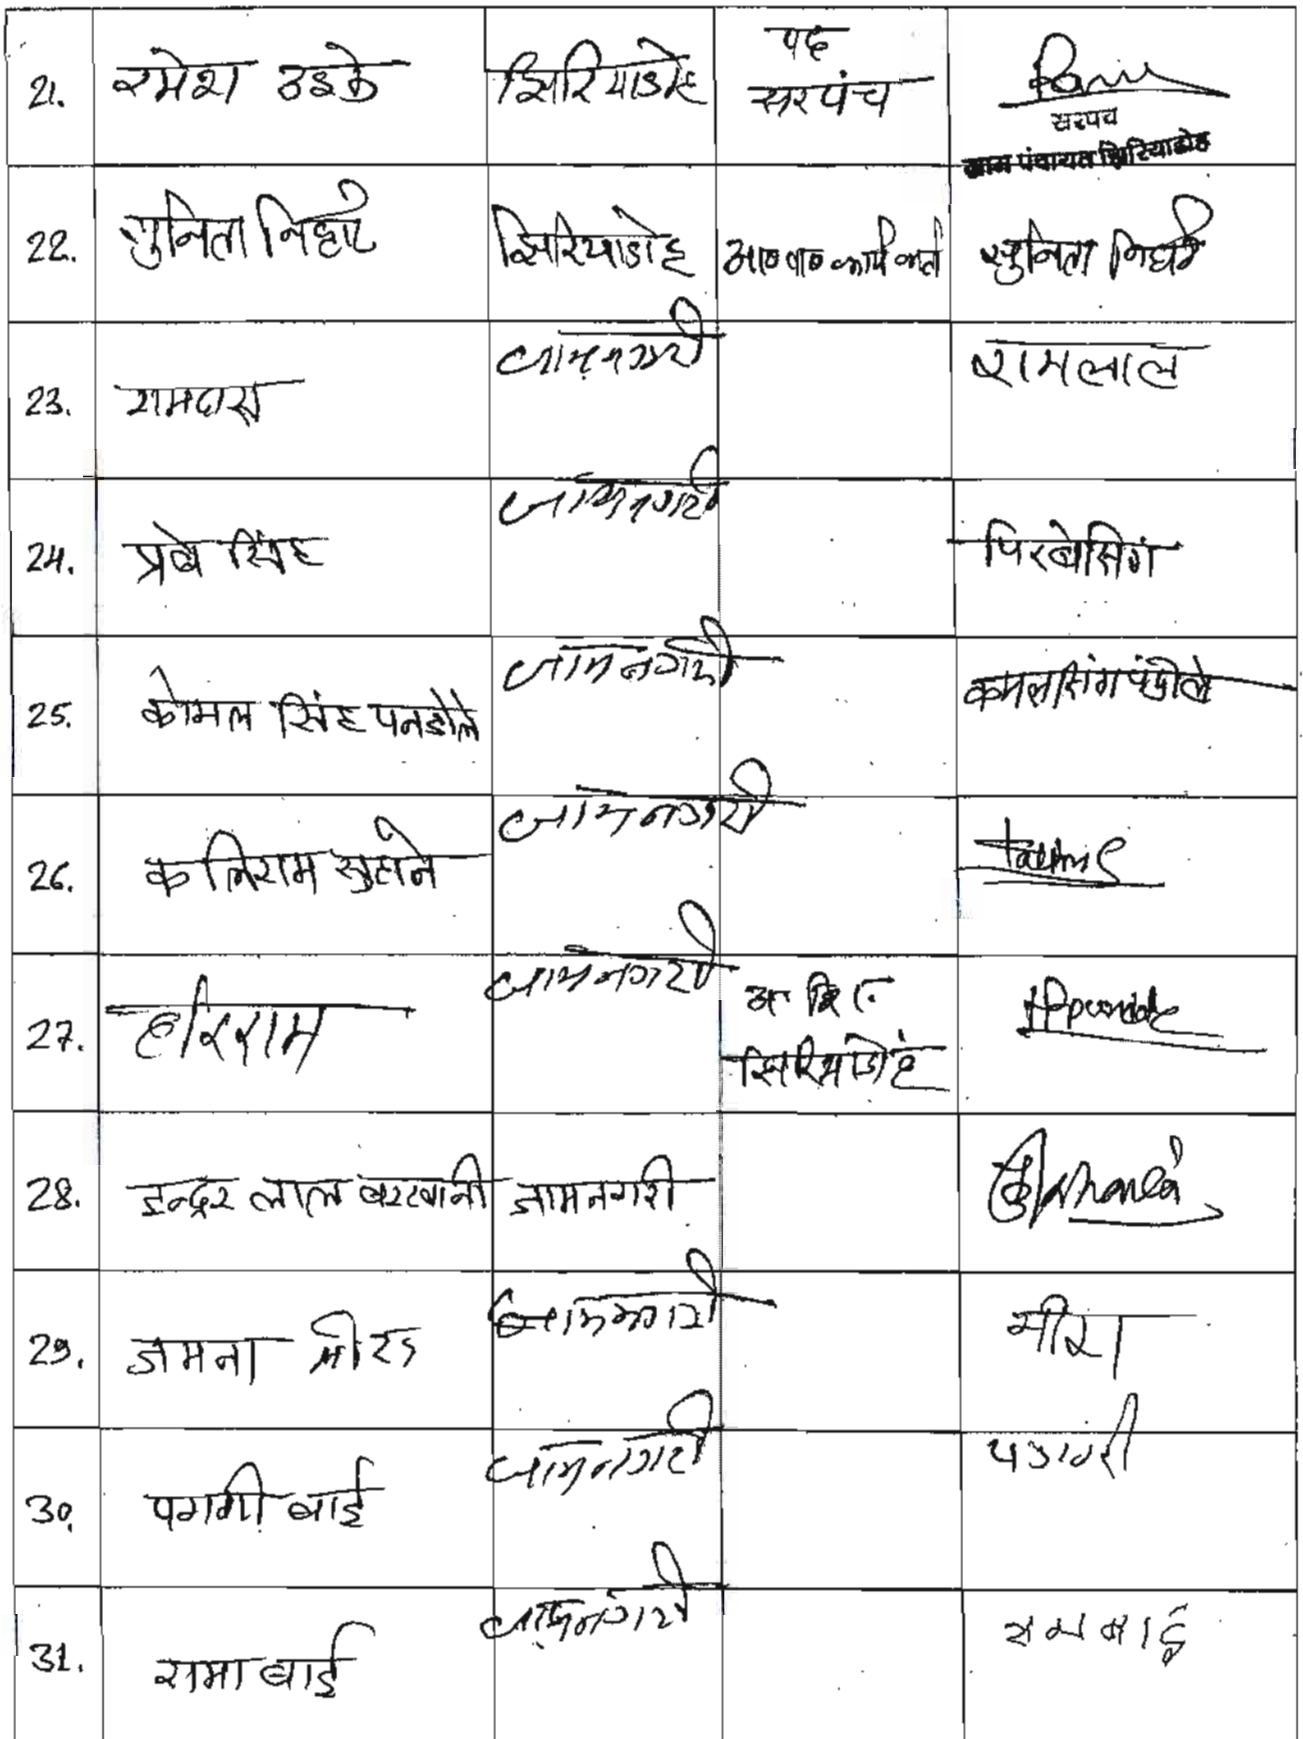 21. रमेश उइके झिरियाडोह पद सरपंच
सरपंच
ग्राम पंचायत झिरियाडोह
22. सुनिता निहारे झिरियाडोह आ०वा० कार्यकर्ता सुनिता निहारे
23. रामदास जामनगरी रामलाल
24. प्रबे सिंह जामनगरी पिरबेसिग
25. कोमल सिंह पनडोले जामनगरी कमलसिंग पंडोले
26. कलिराम जामनगरी
27. हरिराम जामनगरी झिरियाडोह
28. इन्द्रर लाल बरखानी जामनगरी
29. जमना मीरा जामनगरी मीरा
30. पगगी बाई जामनगरी
31. रामा बाई जामनगरी रामबाई